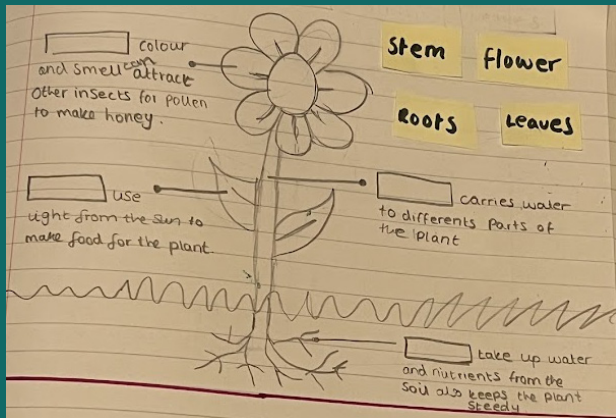 Stem
Flower
Roots
Leaves
colour
and smell can attract
other insects for pollen
to make honey.
use
light from the sun to
make food for the plant
carries water
to differents parts of
the plant
take up water
and nutrients from the
soil also keeps the plant
steedy